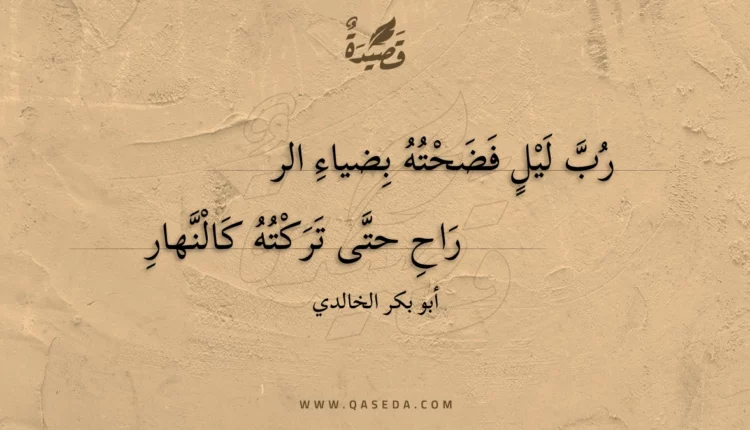 قَصِيْدَةٌ
رُبَّ لَيْلٍ فَضَحْتُهُ بِضياءِ الر
رَاحِ حتَّى تَرَكْتُهُ كَالْنَّهارِ
أبو بكر الخالدي
WWW.QASEDA.COM